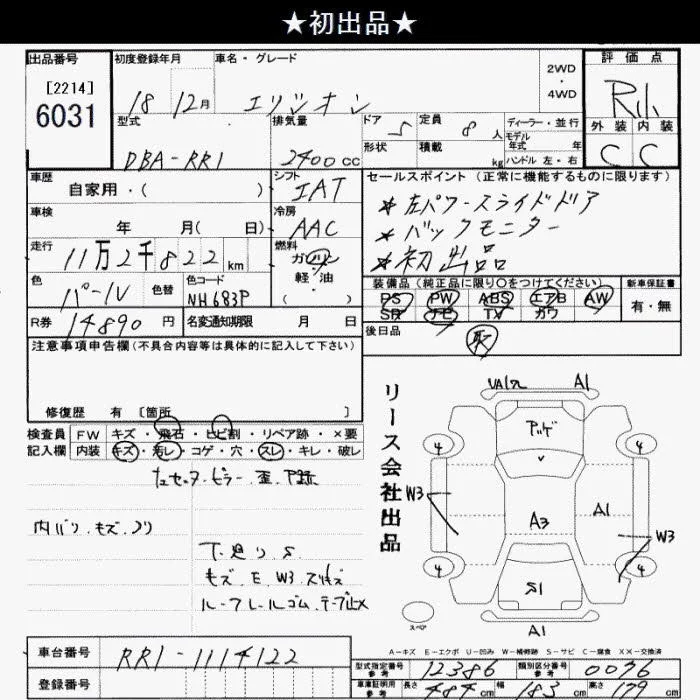 ★初出品★
出品番号 初度登録年月 車名・グレード 評価点
[2214] 6031 18 12月 エリシオン 2WD・4WD
型式 排気量 ドア 5 定員 8人 ディーラー・並行 外装 内装
DBA-RR1 2400cc 形状 積載 kg モデル年式 年 ハンドル 左・右 C C
車歴 シフト セールスポイント(正常に機能するものに限ります)
自家用・( ) IAT *左パワースライドドア
車検 冷房 *バックモニター
年 月( 日) AAC *初出品
走行 燃料
11万2千822km ガソリン 軽・油 ( )
装備品(純正品に限り○をつけてください) 新車保証書
色 色替 色コード PS PW ABS エアB AW 有・無
パール NH683P SR ナビ TV カワ
R券 14890円 名変通知期限 月 日 後日品
注意事項申告欄(不具合内容等は具体的に記入して下さい)
修復歴 有 [箇所 ]
検査員 FW キズ・飛石・ヒビ割・リペア跡・×要
記入欄 内装 キズ・汚レ・コゲ・穴・スレ・キレ・破レ
内バリ.キズ.ソリ
キズ.E.W3.スリキズ
ルーフレールゴム.テープ止メ
リース会社出品
A1
4 4
W3 A3 A1 W3
4 4
S1
スペア A1
A-キズ E-エクボ U-凹み W-補修跡 S-サビ C-腐食 XX-交換済
車台番号 RR1-1114122
型式指定番号 参考 12386 類別区分番号 参考 0036
登録番号
車庫証明用 参考 長さ 484cm 幅 183cm 高さ 179cm